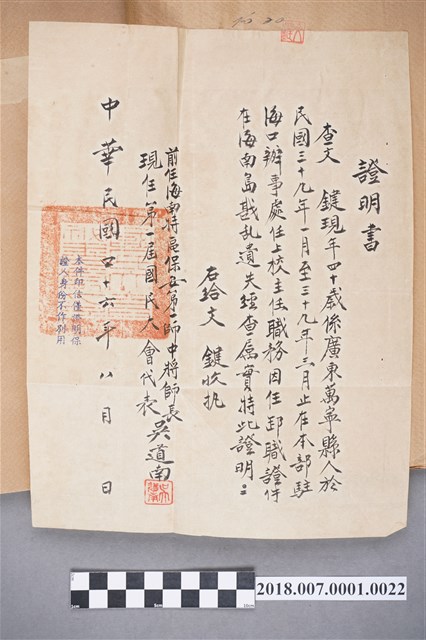 證明書
查文　鍵現年四十歲係廣東萬寧縣人於
民國三十九年一月至三十九年三月止在本部駐
海口辦事處任上校主任職務因任卸職證件
在海南島戡乱遺失經查屬實特此證明：
右給文　鍵收扎
前任海南特區保安第一師中將師長
現任第一屆國民大會代表吳道南
中華民國四十六年八月　日
本件印信僅證明保
證人身份不作別用
2018.007.0001.0022